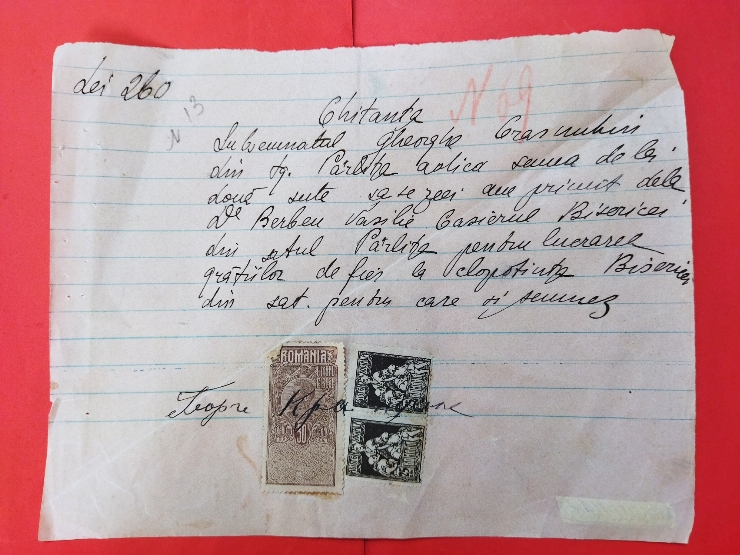 Lei 260
N 13
N 69
Chitanta
Subsemnatul Gheorghe
din tg. Pârlița adica suma de lei
două sute sasezeci am primit dela
Dl Berbeu Vasilie Casierul Bisericei
din satul Pârlița pentru lucrarea
gratiilor de fier la clopotnița Bisericei
din sat. pentru care și semnez
ROMANIA
Георге